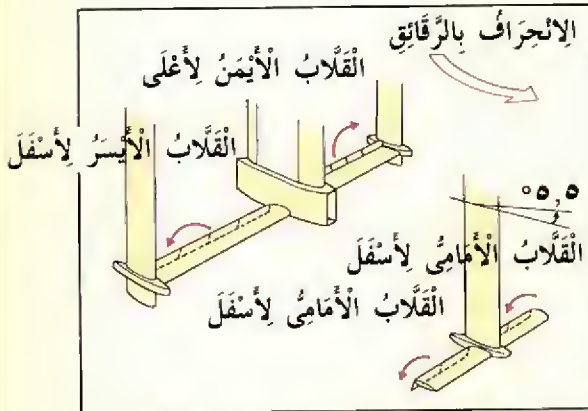 الِانْحِرَافُ بِالرَّقَائِقِ
الْقَلَّابُ الْأَيْمَنُ لِأَعْلَى
الْقَلَّابُ الْأَيْسَرُ لِأَسْفَلَ
٥,٥°
الْقَلَّابُ الْأَمَامِىُّ لِأَسْفَلَ
الْقَلَّابُ الْأَمَامِىُّ لِأَسْفَلَ